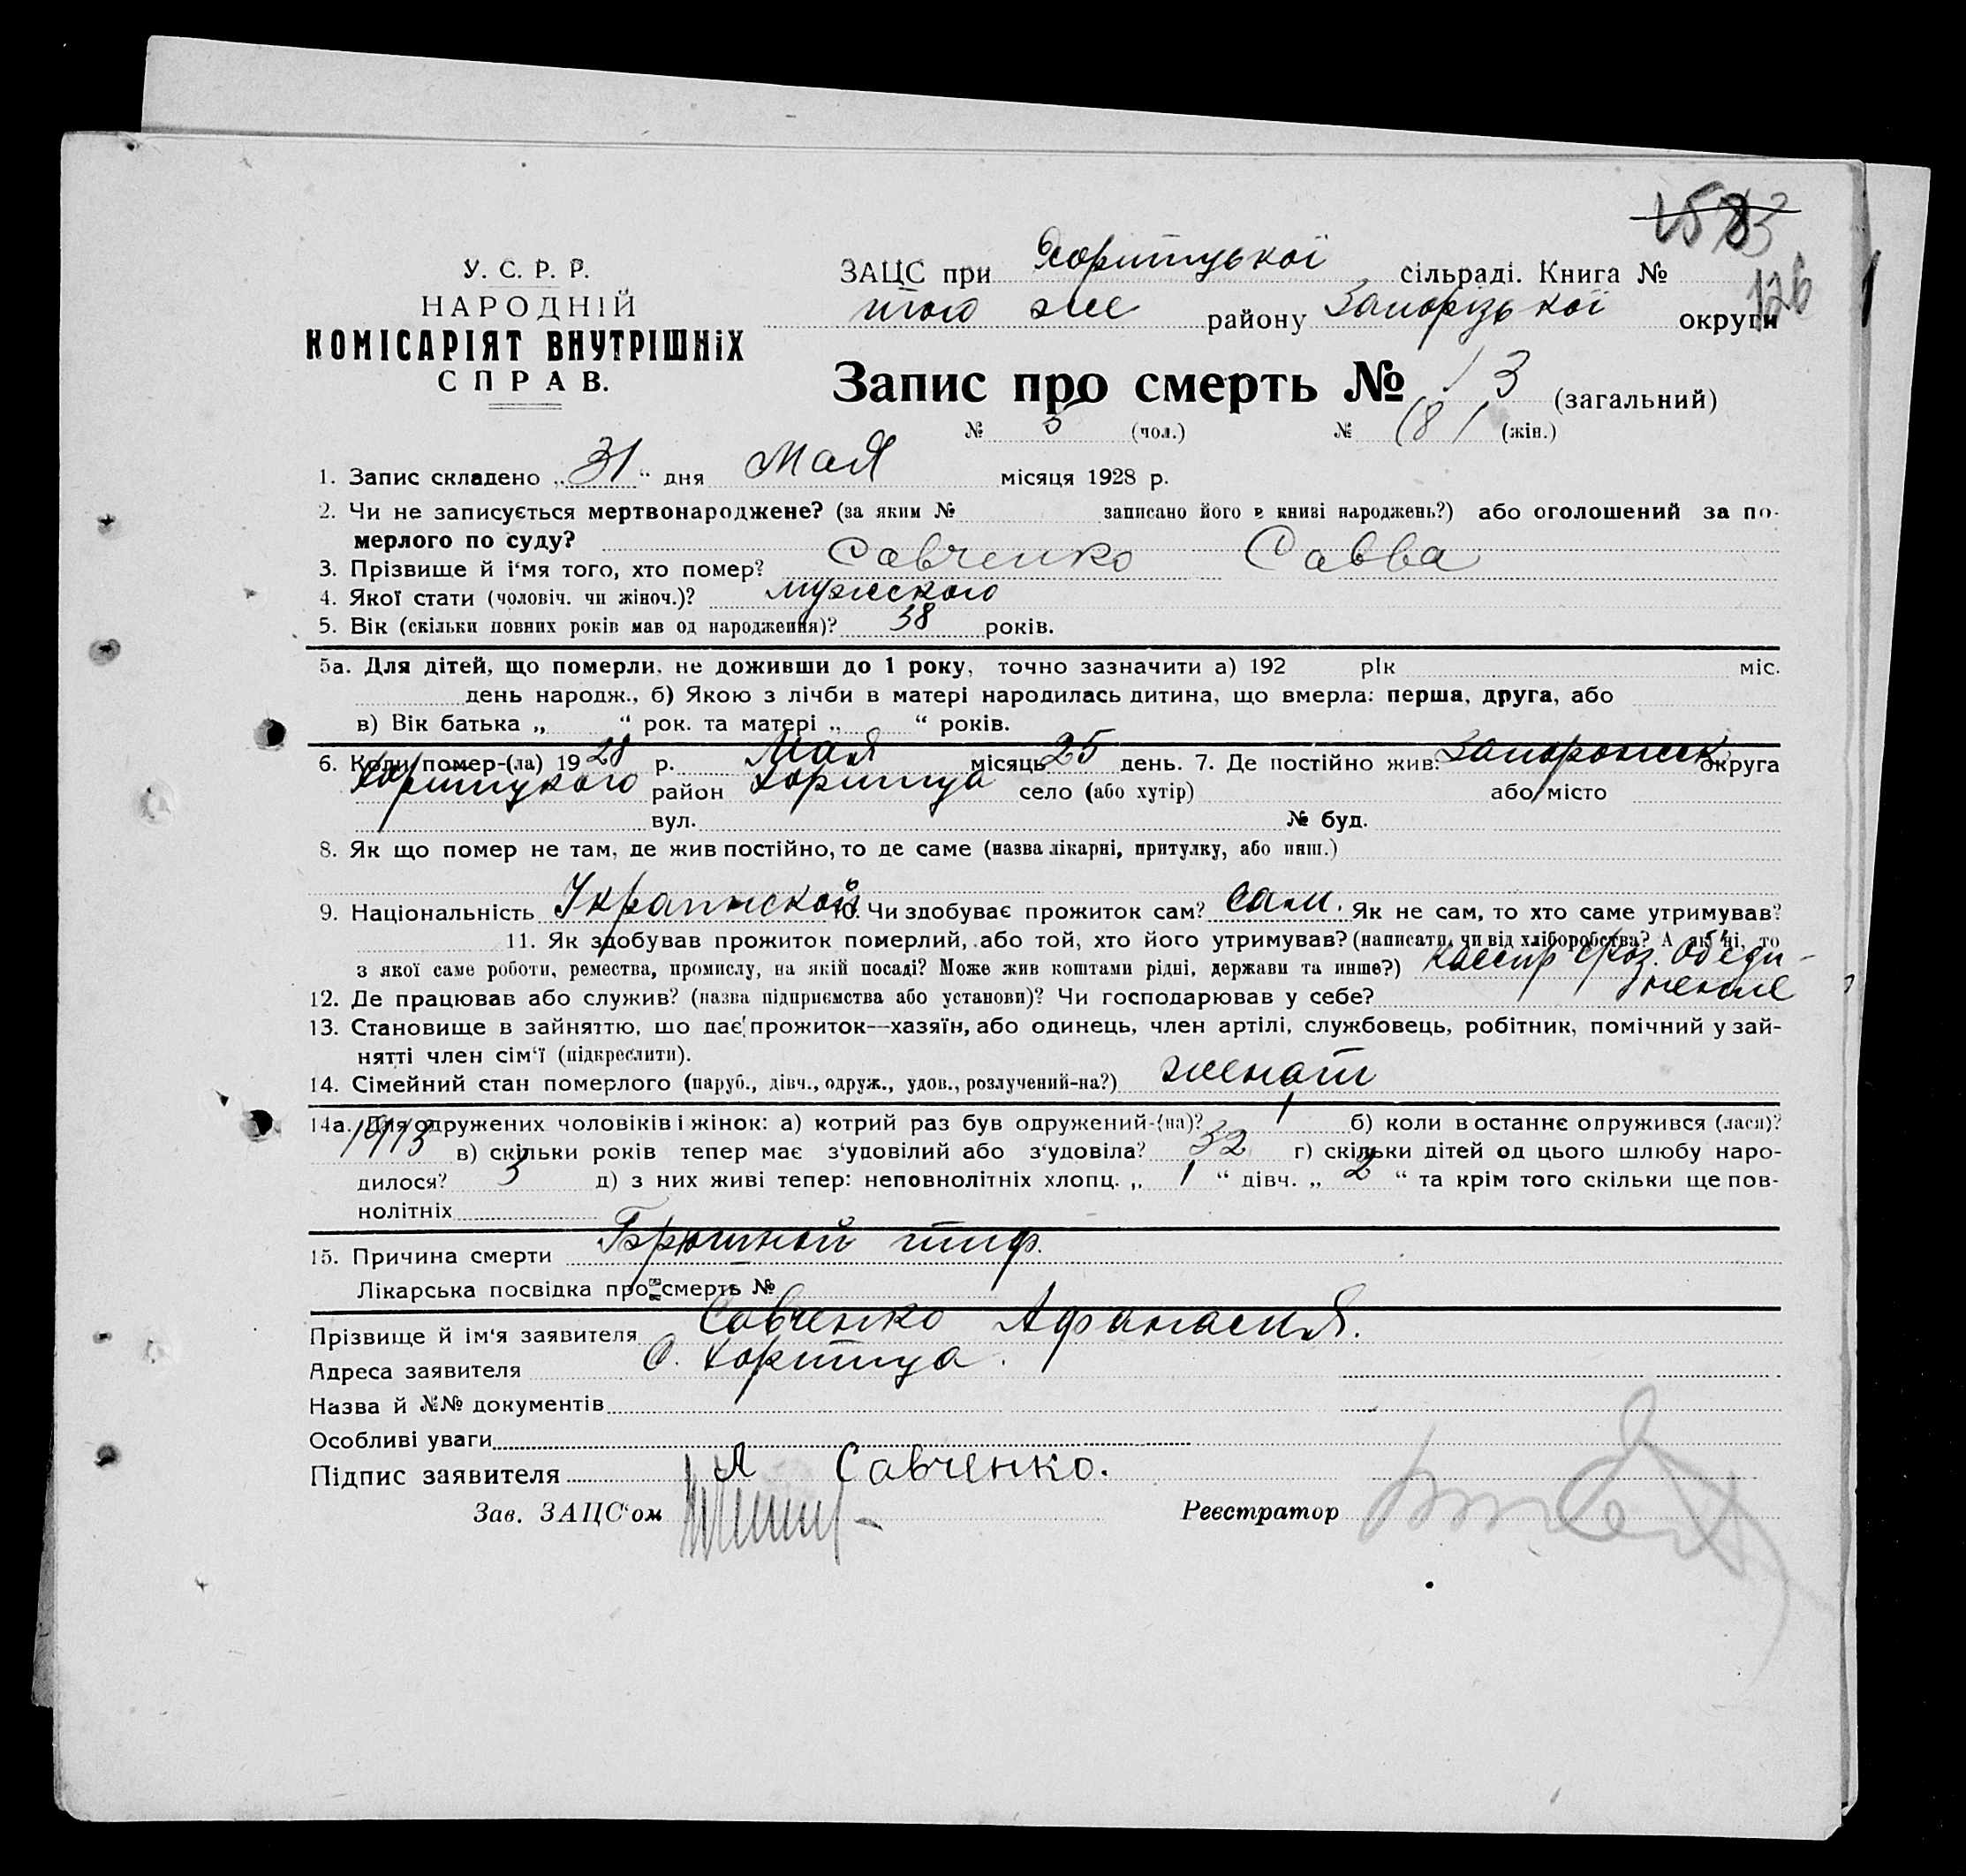 1583
126
У. С. Р. Р.
НАРОДНІЙ
КОМІСАРІЯТ ВНУТРІШНіХ
СПРАВ.
ЗАЦС при Хортицької сільраді. Книга №
того же району Запорізької округи
Запис про смерть № 13 (загальний)
№ 5 (чол.) № (8) (жін.)
1. Запис складено „31“ дня Мая місяця 1928 р.
2. Чи не записується мертвонароджене? (за яким № записано його в книзі народжень?) або оголошений за по-
мерлого по суду?
3. Прізвище й і'мя того, хто помер? Савченко Савва
4. Якої стати (чоловіч. чи жіноч.)? мужского
5. Вік (скільки повних років мав од народження)? 38 років.
5а. Для дітей, що померли, не доживши до 1 року, точно зазначити а) 192 рік міс.
день народж., б) Якою з лічби в матері народилась дитина, що вмерла: перша, друга, або
в) Вік батька „ “ рок. та матері „ “ років.
6. Коли помер-(ла) 1928 р. Мая місяць 25 день. 7. Де постійно жив: Запорожск округа
Хортицкого район Хортица село (або хутір) або місто
вул. № буд.
8. Як що помер не там, де жив постійно, то де саме (назва лікарні, притулку, або инш.)
9. Національність Украинской 10. Чи здобуває прожиток сам? сам. Як не сам, то хто саме утримував?
11. Як здобував прожиток померлий, або той, хто його утримував? (написати, чи від хліборобства? А як ні, то
з якої саме роботи, ремества, промислу, на якій посаді? Може жив коштами рідні, держави та инше?) Кассир Обеди-
12. Де працював або служив? (назва підприємства або установи)? Чи господарював у себе? нение
13. Становище в зайняттю, що дає прожиток—хазяїн, або одинець, член артілі, службовець, робітник, помічний у зай-
нятті член сім'ї (підкреслити).
14. Сімейний стан померлого (паруб., дівч., одруж., удов., розлучений-на?) женат
14а. Для одружених чоловіків і жінок: а) котрий раз був одружений-(на)? 1 б) коли в останнє одружився (лася)?
1913 в) скільки років тепер має з'удовілий або з'удовіла? 32 г) скільки дітей од цього шлюбу наро-
дилося? 3 д) з них живі тепер: неповнолітніх хлопц. „ 1 “ дівч. „ 2 “ та крім того скільки ще пов-
нолітніх
15. Причина смерти Брюшной тиф.
Лікарська посвідка про смерть №
Прізвище й ім'я заявителя Савченко Афанасия.
Адреса заявителя с. Хортица.
Назва й №№ документів
Особливі уваги
Підпис заявителя А Савченко.
Зав. ЗАЦС'ом Реєстратор